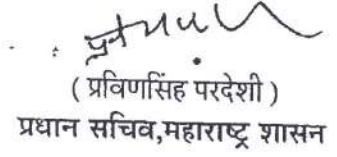 ( प्रविणसिंह परदेशी )
प्रधान सचिव,महाराष्ट्र शासन